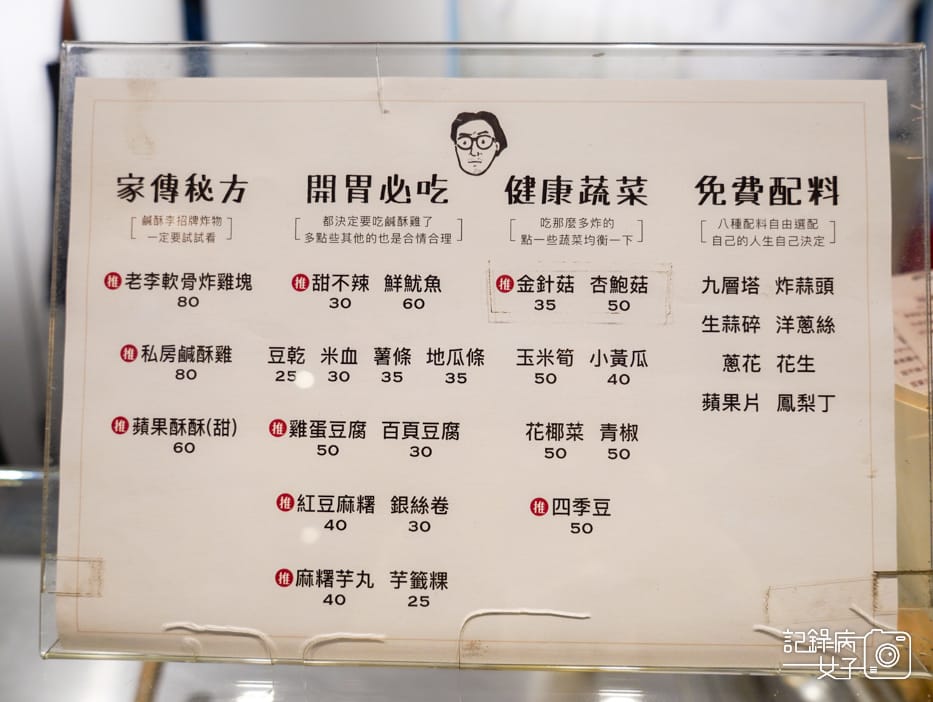 家傳秘方
鹹酥李招牌炸物
一定要試試看
推 老李軟骨炸雞塊
80
推 私房鹹酥雞
80
推 蘋果酥酥(甜)
60
開胃必吃
都決定要吃鹹酥雞了
多點些其他的也是合情合理
推 甜不辣 鮮魷魚
30 60
豆乾 米血 薯條 地瓜條
25 30 35 35
推 雞蛋豆腐 百頁豆腐
50 30
推 紅豆麻糬 銀絲卷
40 30
推 麻糬芋丸 芋籤粿
40 25
健康蔬菜
吃那麼多炸的
點一些蔬菜均衡一下
推 金針菇 杏鮑菇
35 50
玉米筍 小黃瓜
50 40
花椰菜 青椒
50 50
推 四季豆
50
免費配料
八種配料自由選配
自己的人生自己決定
九層塔 炸蒜頭
生蒜碎 洋蔥絲
蔥花 花生
蘋果片 鳳梨丁
記錄病
女子